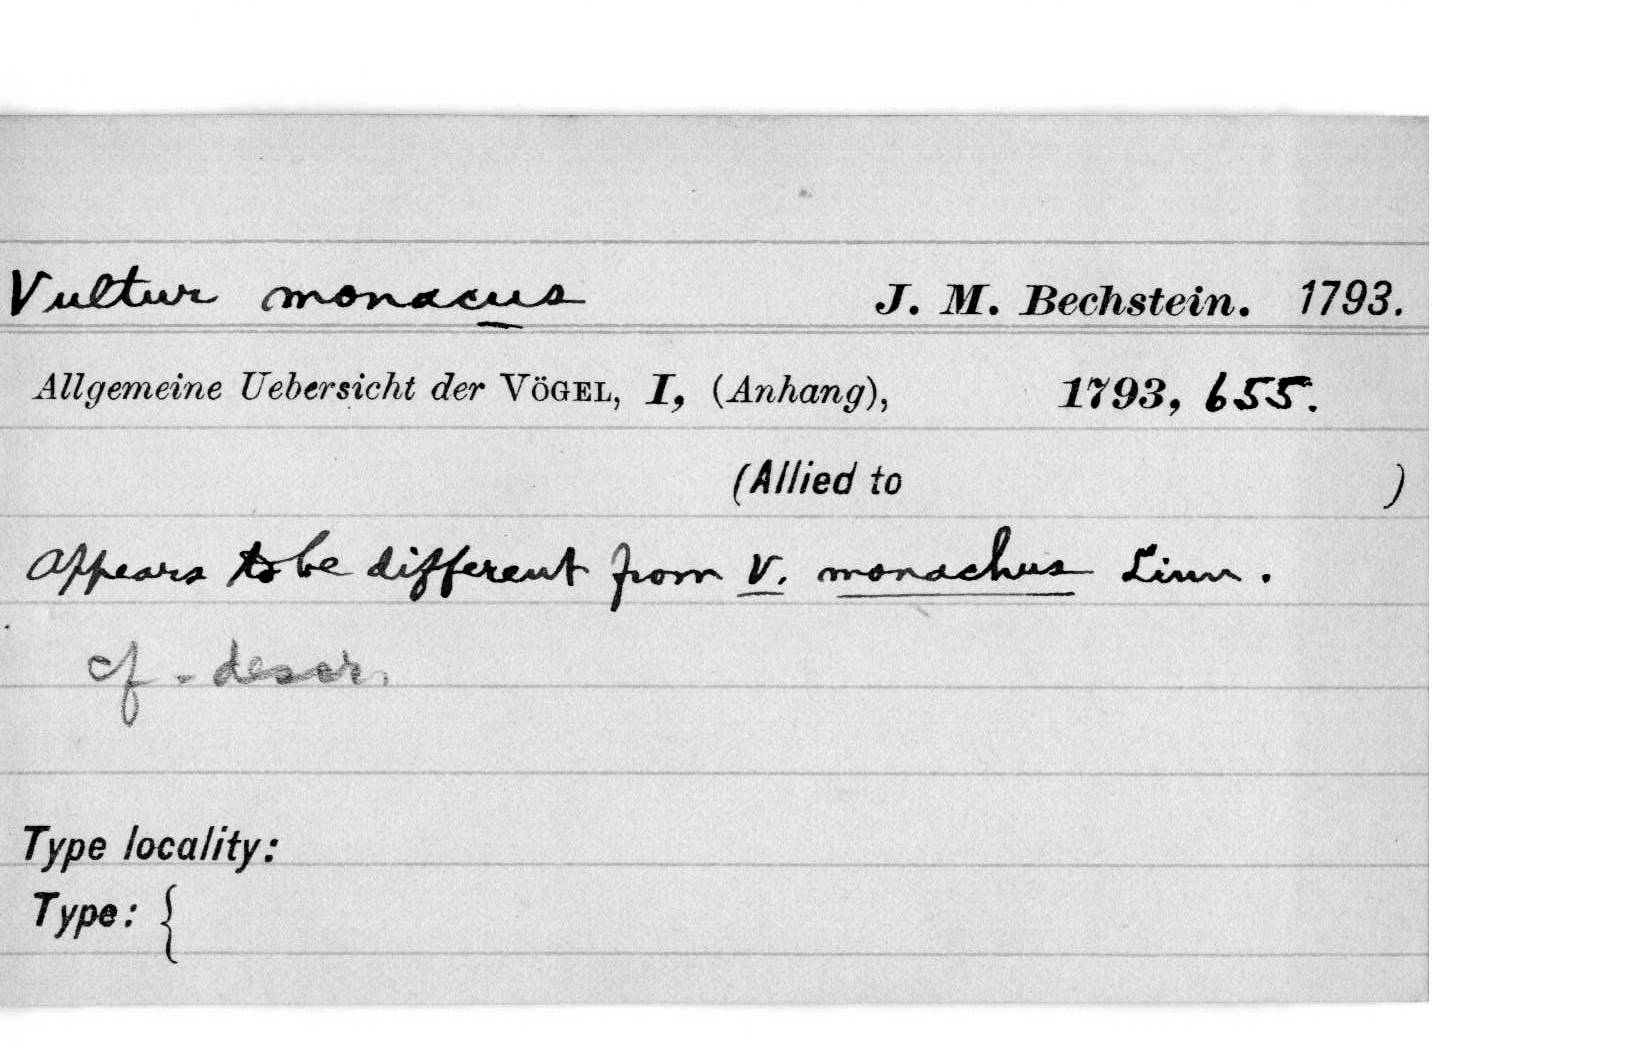 Vultur monacus J. M. Bechstein. 1793.
Allgemeine Uebersicht der VÖGEL, I, (Anhang), 1793, 655.
(Allied to )
Appears to be different from V. monachus Linn.
cf. descr.
Type locality:
Type: {